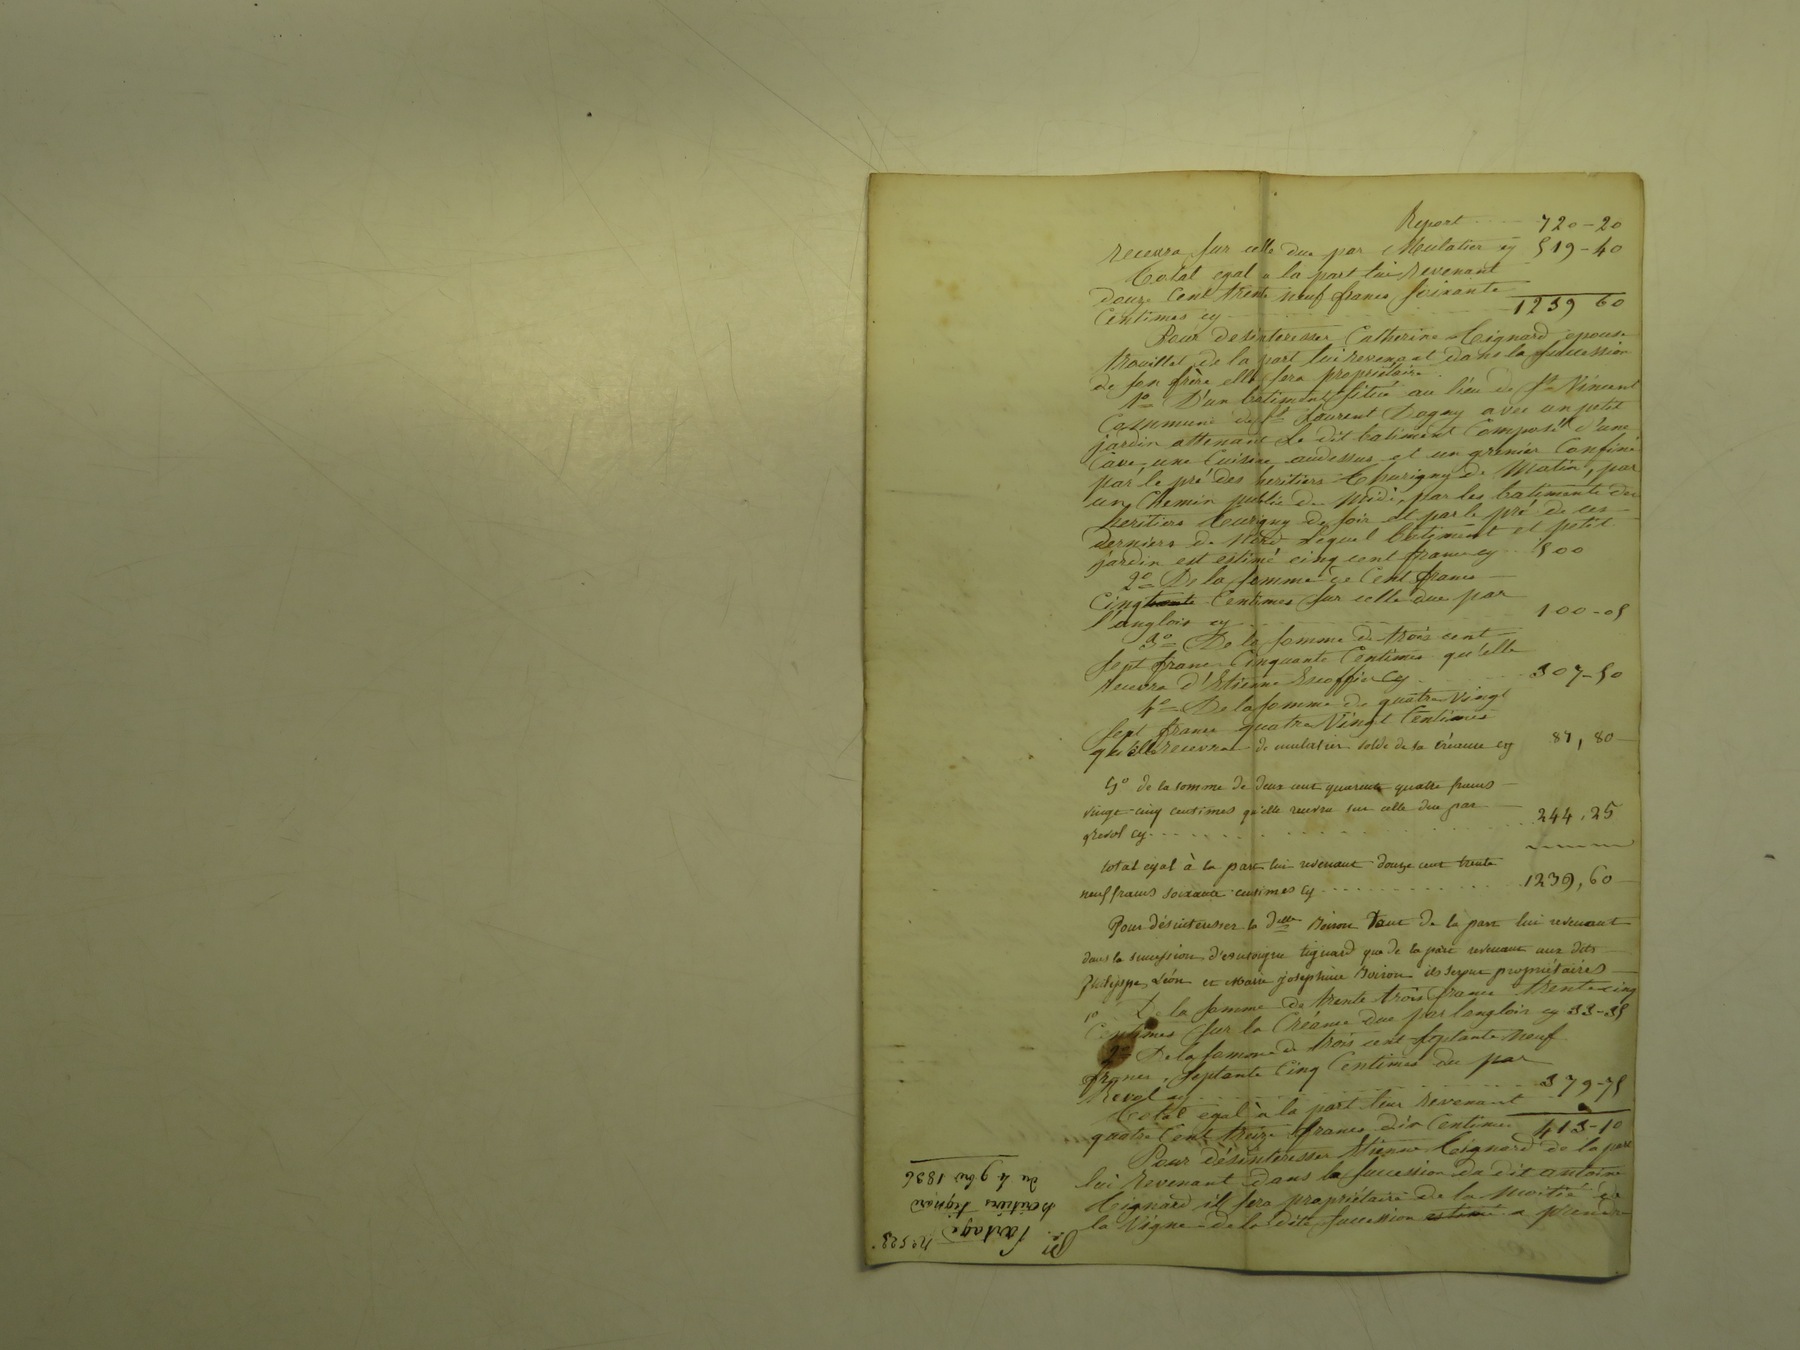 Report 720-20
recevra sur celle due par Mulatier cy 519-40
Total egal a la part lui Revenant
douze Cent trente neuf francs soixante
Centimes cy 1239 60
Pour desinteresser Catherine Tignard epouse
trouillet de la part lui revenant dans la succession
de son frère elle sera propriétaire
1o D'un batiment situé au lieu de St Vincent
Commune de St Laurent Dagny avec un petit
jardin attenant Le dit batiment Composé d'une
Cave une Cuisine audessus et un grenier Confiné
par le pré des heritiers Thurigny de Matin, par
un Chemin public de Midi, par les batiments des
heritiers turigny de soir et par le pré de ces
derniers de Nord Lequel batiment et petit
jardin est estimé cinq cent francs cy 500
2o De la somme de Cent francs
Cinq trente Centimes sur celle due par
l'anglois cy 100-05
3o De la somme de trois cent
sept francs Cinquante Centimes qu'elle
recevra d'Etienne Escoffier cy 307-50
4o De la somme de quatre Vingt
sept francs quatre Vingt Centimes
qu'elle recevra de mulatier solde de sa créance cy 87,80
5o de la somme de deux cent quarante quatre francs
vingt-cinq centimes qu'elle recevra sur celle due par
Revol cy 244,25
total egal à la part lui revenant douze cent trente
neuf francs soixante centimes cy 1239,60
Pour désinteresser la delle Boiron tant de la part lui revenant
dans la succession d'antoine tignard que de la part revenant aux dits
Philippe, Léon et Marie josephine Boiron ils seront propriétaires
1o De la somme de trente trois francs trente cinq
Centimes sur la Créance due par langlois cy 33-35
2o De la somme de trois cent septante neuf
francs, septante Cinq Centimes du par
Revol cy 379-75
total egal à la part leur revenant
quatre Cent treize francs dix Centimes 413-10
Pour désinteresser Etienne Tignard de la part
lui Revenant dans la succession du dit antoine
Tignard il sera propriétaire de la moitié de
la Vigne de la dite succession estimé a prendre
No 523
Partage
héritiers Tignard
du 4 9bre 1836